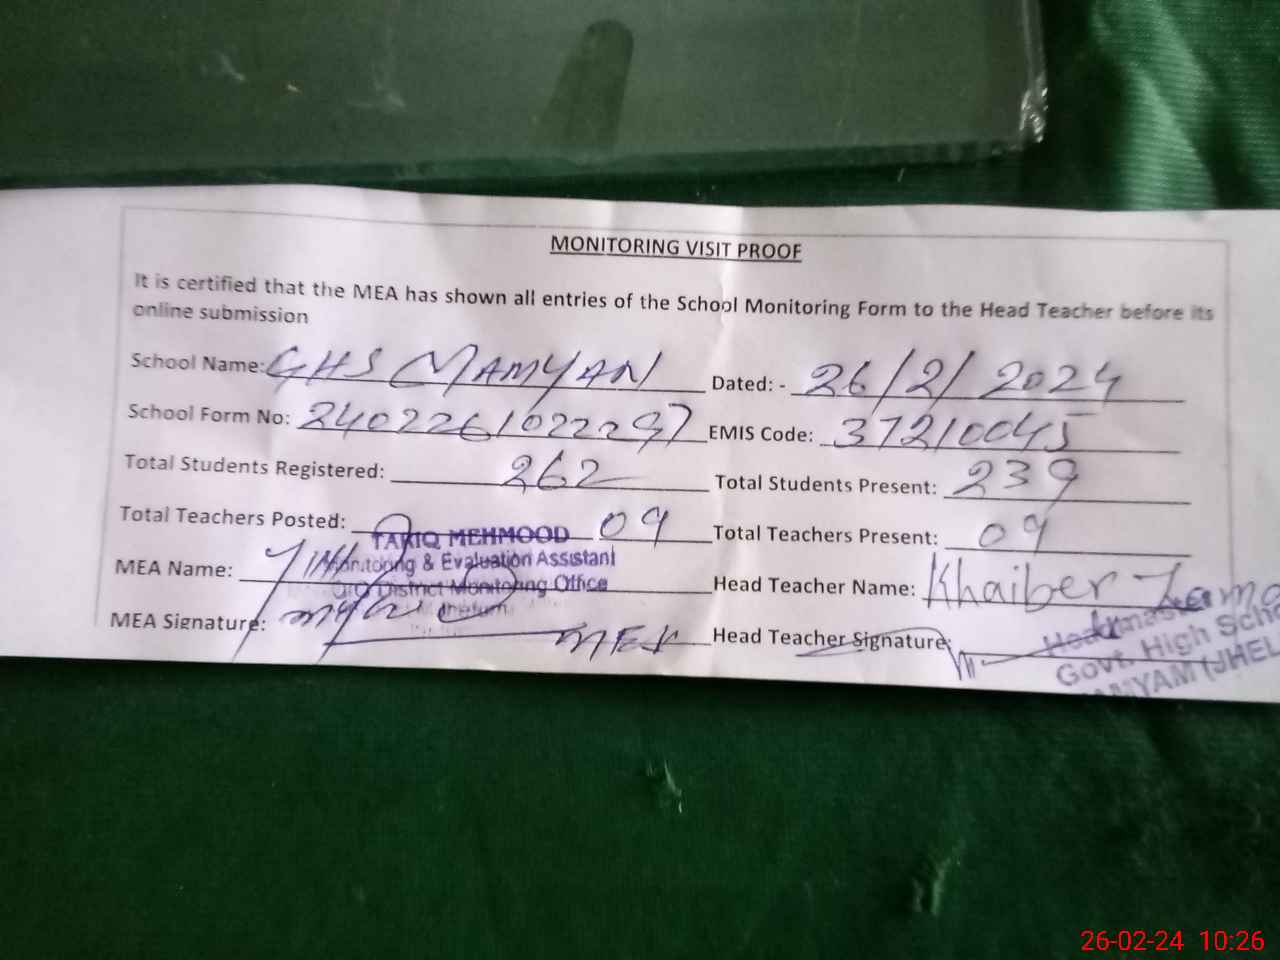 MONITORING VISIT PROOF
It is certified that the MEA has shown all entries of the School Monitoring Form to the Head Teacher before its
online submission
School Name: GHS MAMYAN Dated: - 26/2/2024
School Form No: 2402261022297 EMIS Code: 37210045
Total Students Registered: 262 Total Students Present: 239
Total Teachers Posted: 09 Total Teachers Present: 09
TARIQ MEHMOOD
Monitoring & Evaluation Assistant
O/O District Monitoring Office
Jhelum
MEA Name: Head Teacher Name: Khaiber
MEA Signature: MEA Head Teacher Signature:
Headmaster
Govt. High Scho
MAMYAM (JHEL
26-02-24 10:26